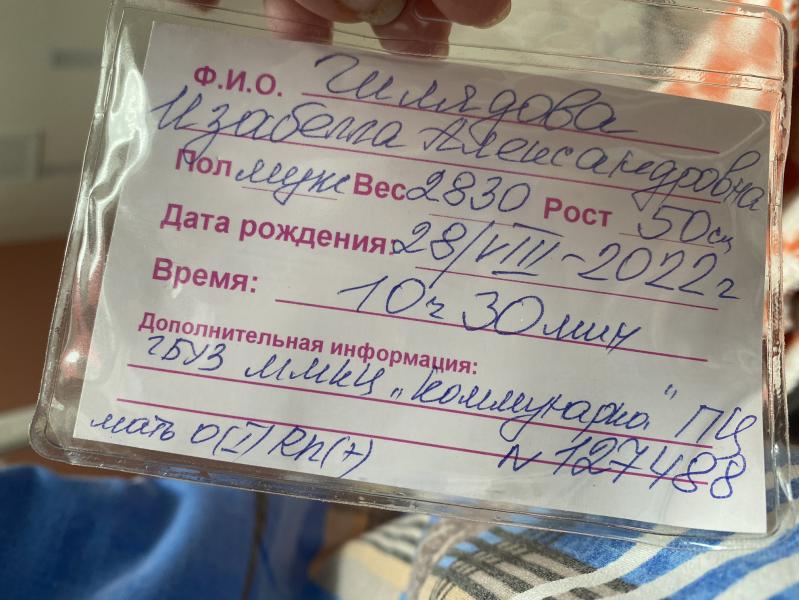 Ф.И.О. Гилядова
Изабелла Александровна
Пол муж Вес 2830 Рост 50см
Дата рождения: 28/VIII-2022г
Время: 10ч 30мин
Дополнительная информация:
ГБУЗ ММКЦ „Коммунарка" ПЦ
мать O(I) Rh(+) N 127488